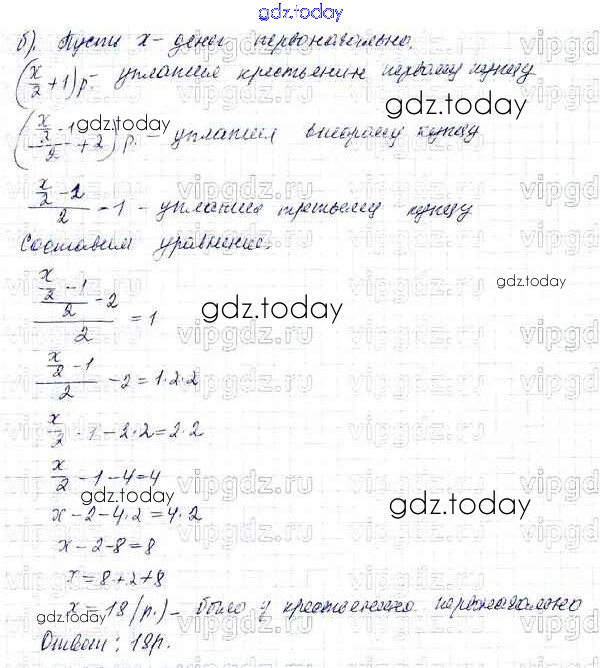 gdz.today
б). Пусть x - денег первоначально.
(x/2 + 1) р - уплатил крестьянин первому купцу
((x/2 - 1)/2 + 2) р. - уплатил второму купцу
gdz.today
gdz.today
(x/2 - 2)/2 - 1 - уплатил третьему купцу
Составим уравнение:
((x/2 - 1)/2 - 2)/2 = 1
gdz.today
gdz.today
(x/2 - 1)/2 - 2 = 1·2·2
x/2 - 1 - 2·2 = 2·2
x/2 - 1 - 4 = 4
gdz.today
gdz.today
x - 2 - 4·2 = 4·2
x - 2 - 8 = 8
x = 8 + 2 + 8
x = 18 (р.) - было у крестьянина первоначально
gdz.today
Ответ: 18р.
vipgdz.ru